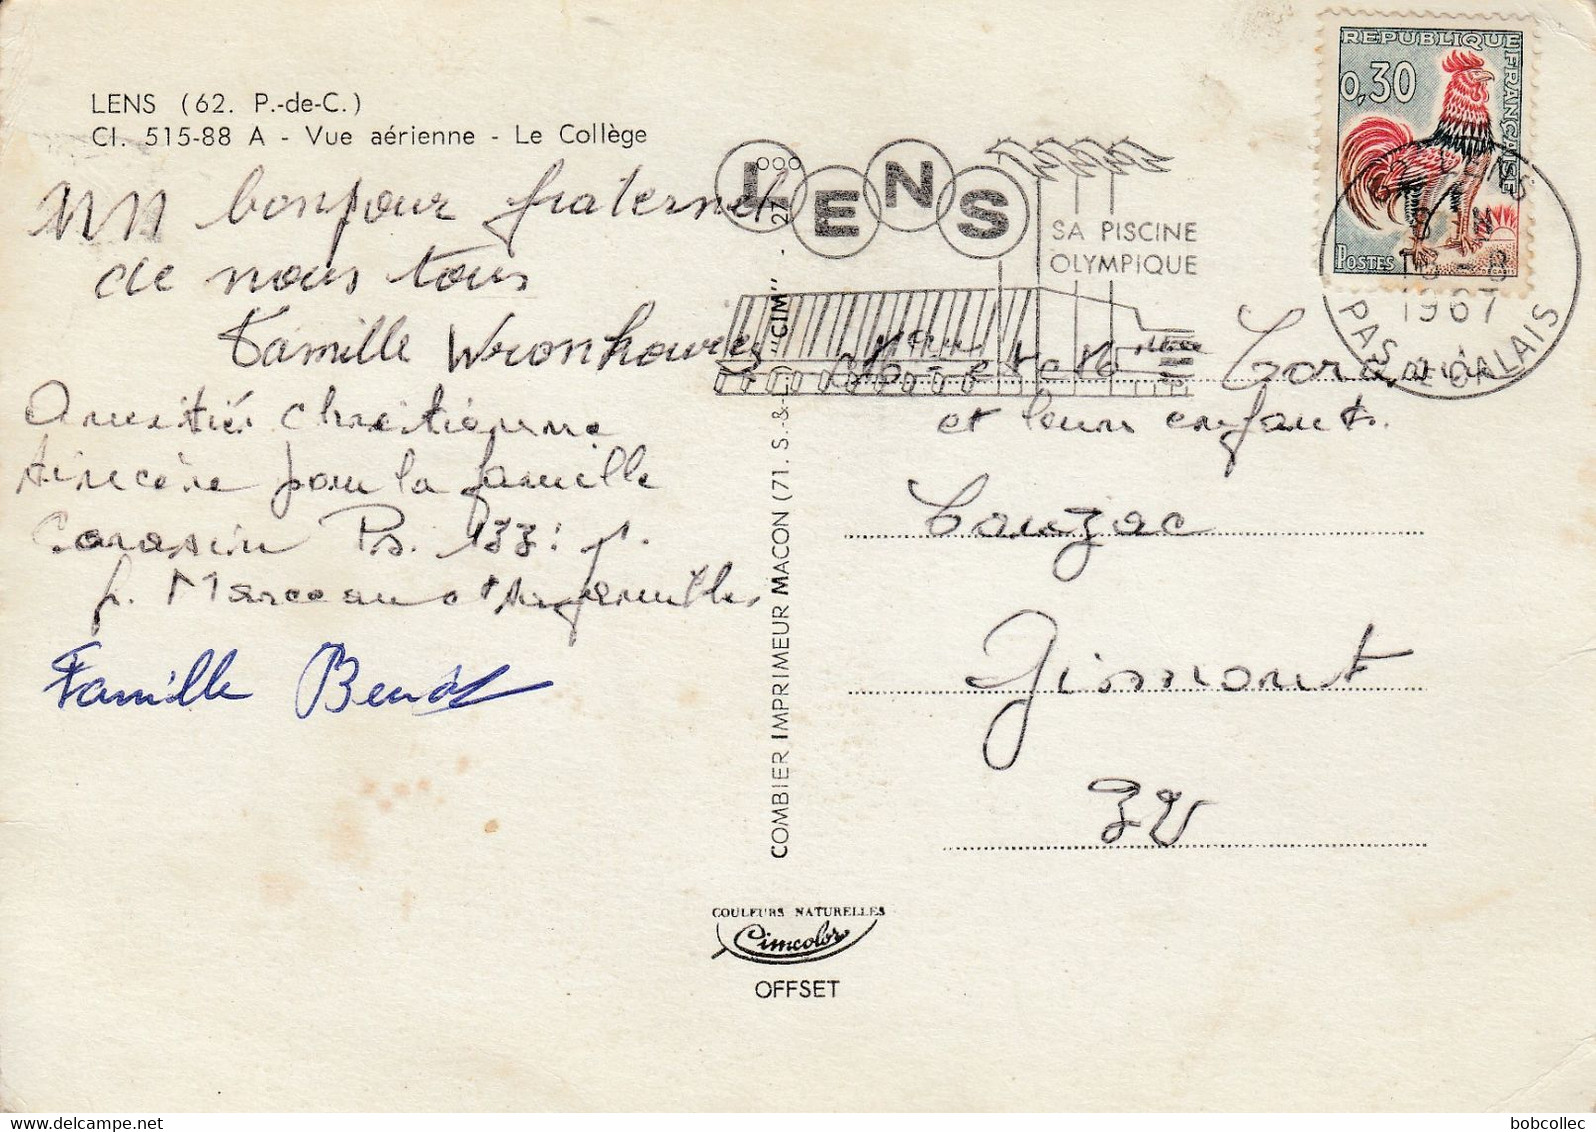 LENS (62. P.-de-C.)
Cl. 515-88 A - Vue aérienne - Le Collège
un bonjour fraternel
de nous tous
Famille Wronkowicz
Amitiés Chrétienne
sincère pour la famille
Corassin Ps. 133: 1.
f. Marceau et sa famille
Famille
COMBIER IMPRIMEUR MACON (71. S.-&-L.) "CIM" - 27
COULEURS NATURELLES
Cimcolor
OFFSET
LENS
SA PISCINE
OLYMPIQUE
REPUBLIQUE FRANÇAISE
0,30
POSTES
LENS
1967
PAS DE CALAIS
et leurs enfants.
Touzac
Gismont
32